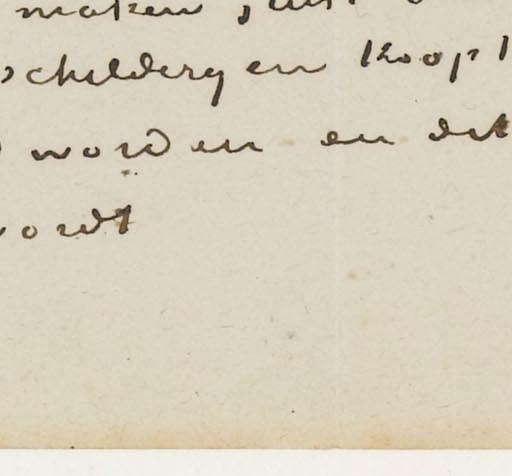 maken, juist
schilderyen koopt
worden en dit
wordt